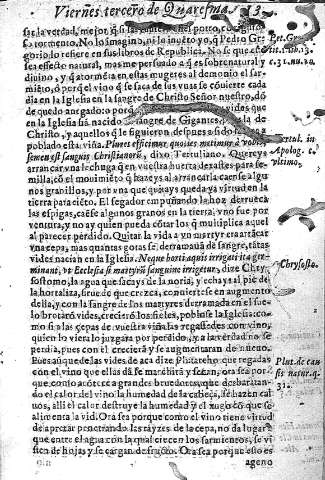 Viernes tercero de Quaresma 13
sas la verdad, mejor, q̃ si las
a tormento. No lo imagino, ni lo inuẽto yo, q̃ Pedro Gre
gorio lo refiere en sus libros de Republica. No se q̃ sea
sea effecto natural, mas me persuado a q̃ es sobrenatural y
diuino, y q̃ atormẽta en estas mugeres al demonio el sar
miẽto, o por q̃ el vino q̃ se saca de las vuas se cõuierte cada
dia en la Iglesia en la sangre de Christo Señor nuestro, dõ
de quedo purgado o por vides que
en la Iglesia hã nacido sangre de Gigantes, la de
Christo, y aquellos q̃ le siguieron despues a sido
poblado esta viña. Plures efficimur, quoties metimur à vobis,
semen est sanguis Christianorũ, dixo Tertuliano. Quereys
arrancar vna lechuga q̃ en vuestra huerta dexastes para se-
milla, cõ el mouimiẽto q̃ hazeys al arrancarla caense algu
nos granillos, y por vna que quitays queda ya virtud en la
tierra para ciẽto. El segador empuñando la hoz derrueca
las espigas, caẽse algunos granos en la tierra, vno fue por
ventura, y no ay quien pueda cõtar los q̃ multiplica aquel
al parecer perdido. Quitar la vida a vn martyr era atãcar
vna cepa, mas quantas gotas se derramauã de sangre, tãtas
vides nacian en la Iglesia. Neque horti aquis irrigati ita ger
minant, vt Ecclesia si martyrũ sanguine irrigetur, dize Chry
sostomo, la agua que sacays de la noria, y echays al pie de
la hortaliza, sin q̃ de que crezca, conuiertese en augmento
della, y con la sangre de los martyres derramada en el sue-
lo brotarõ vides, creciero los fieles, poblose la Iglesia: co-
mo si a las çepas de vuestra viña las regassedes con vino,
quien lo viera lo juzgara por perdido, y a la verdad no se
perdia, pues con el crecieran y se augmentaran de nueuo.
Pues aũque de las vides de aca dize Plutarcho que regadas
con el vino que ellas dã se marchitã y secan, ora sea por
que, como acõtece a grandes bruedores, que desbaratan-
do el calor del vino la humedad de la cabeça, se hazen cal
uos, alli el calor destruye la humedad y el xugo cõ que se
alimenta la vid. Ora sea porque como el vino tiene virtud
de apretar penetrando las rayzes de la cepa, no da lugar a
que entre el agua con la qual crecen los sarmientos, se vi
sten de hojas y se cargan de fructo. Ora sea porque esto es
ageno
Pet. Gre.
lib. 13.
c. 31. nu. 20.
Tertul. in
Apolog. c.
vltimo.
Chrysosto.
Plut. de cau
sis natur. q.
31.